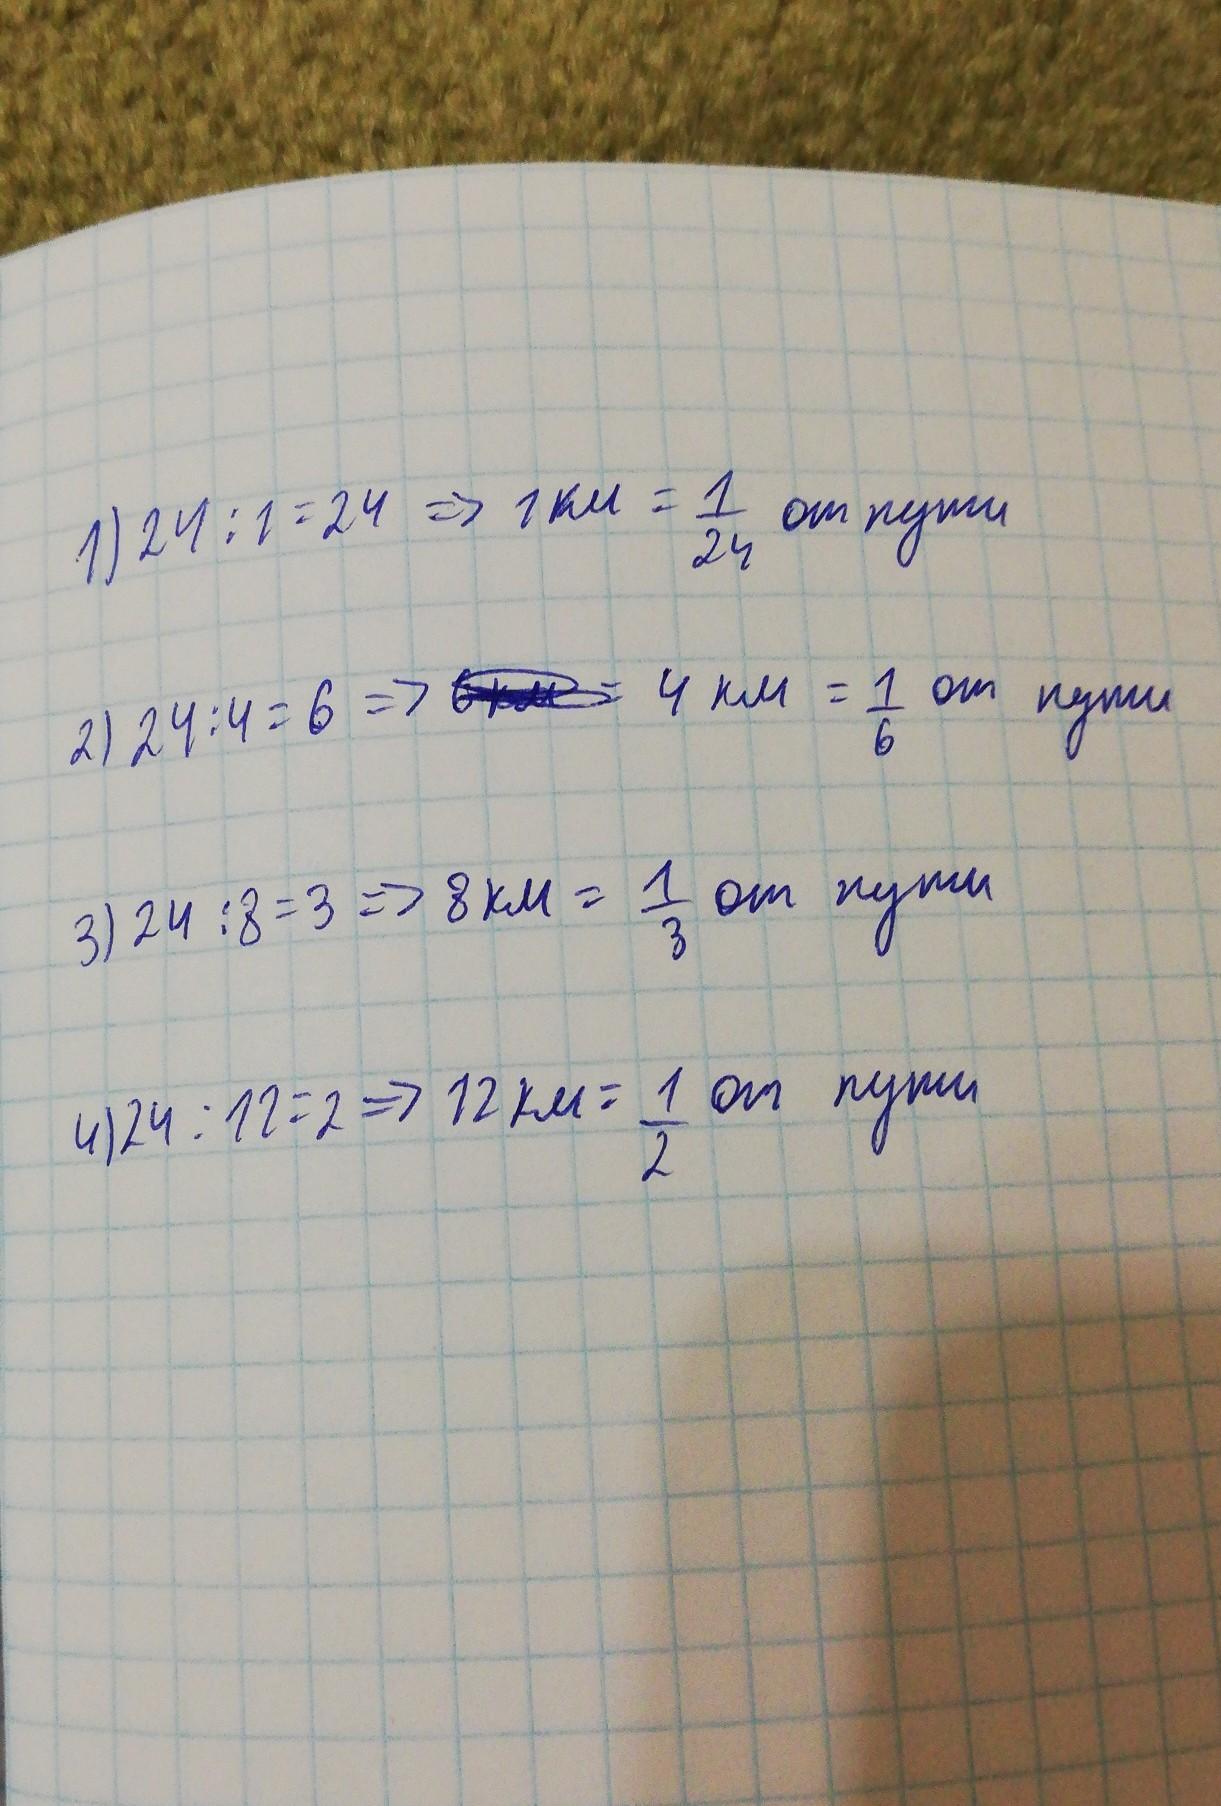 1) 24 : 1 = 24 => 1 км = 1/24 от пути
2) 24 : 4 = 6 => 4 км = 1/6 от пути
3) 24 : 8 = 3 => 8 км = 1/3 от пути
4) 24 : 12 = 2 => 12 км = 1/2 от пути